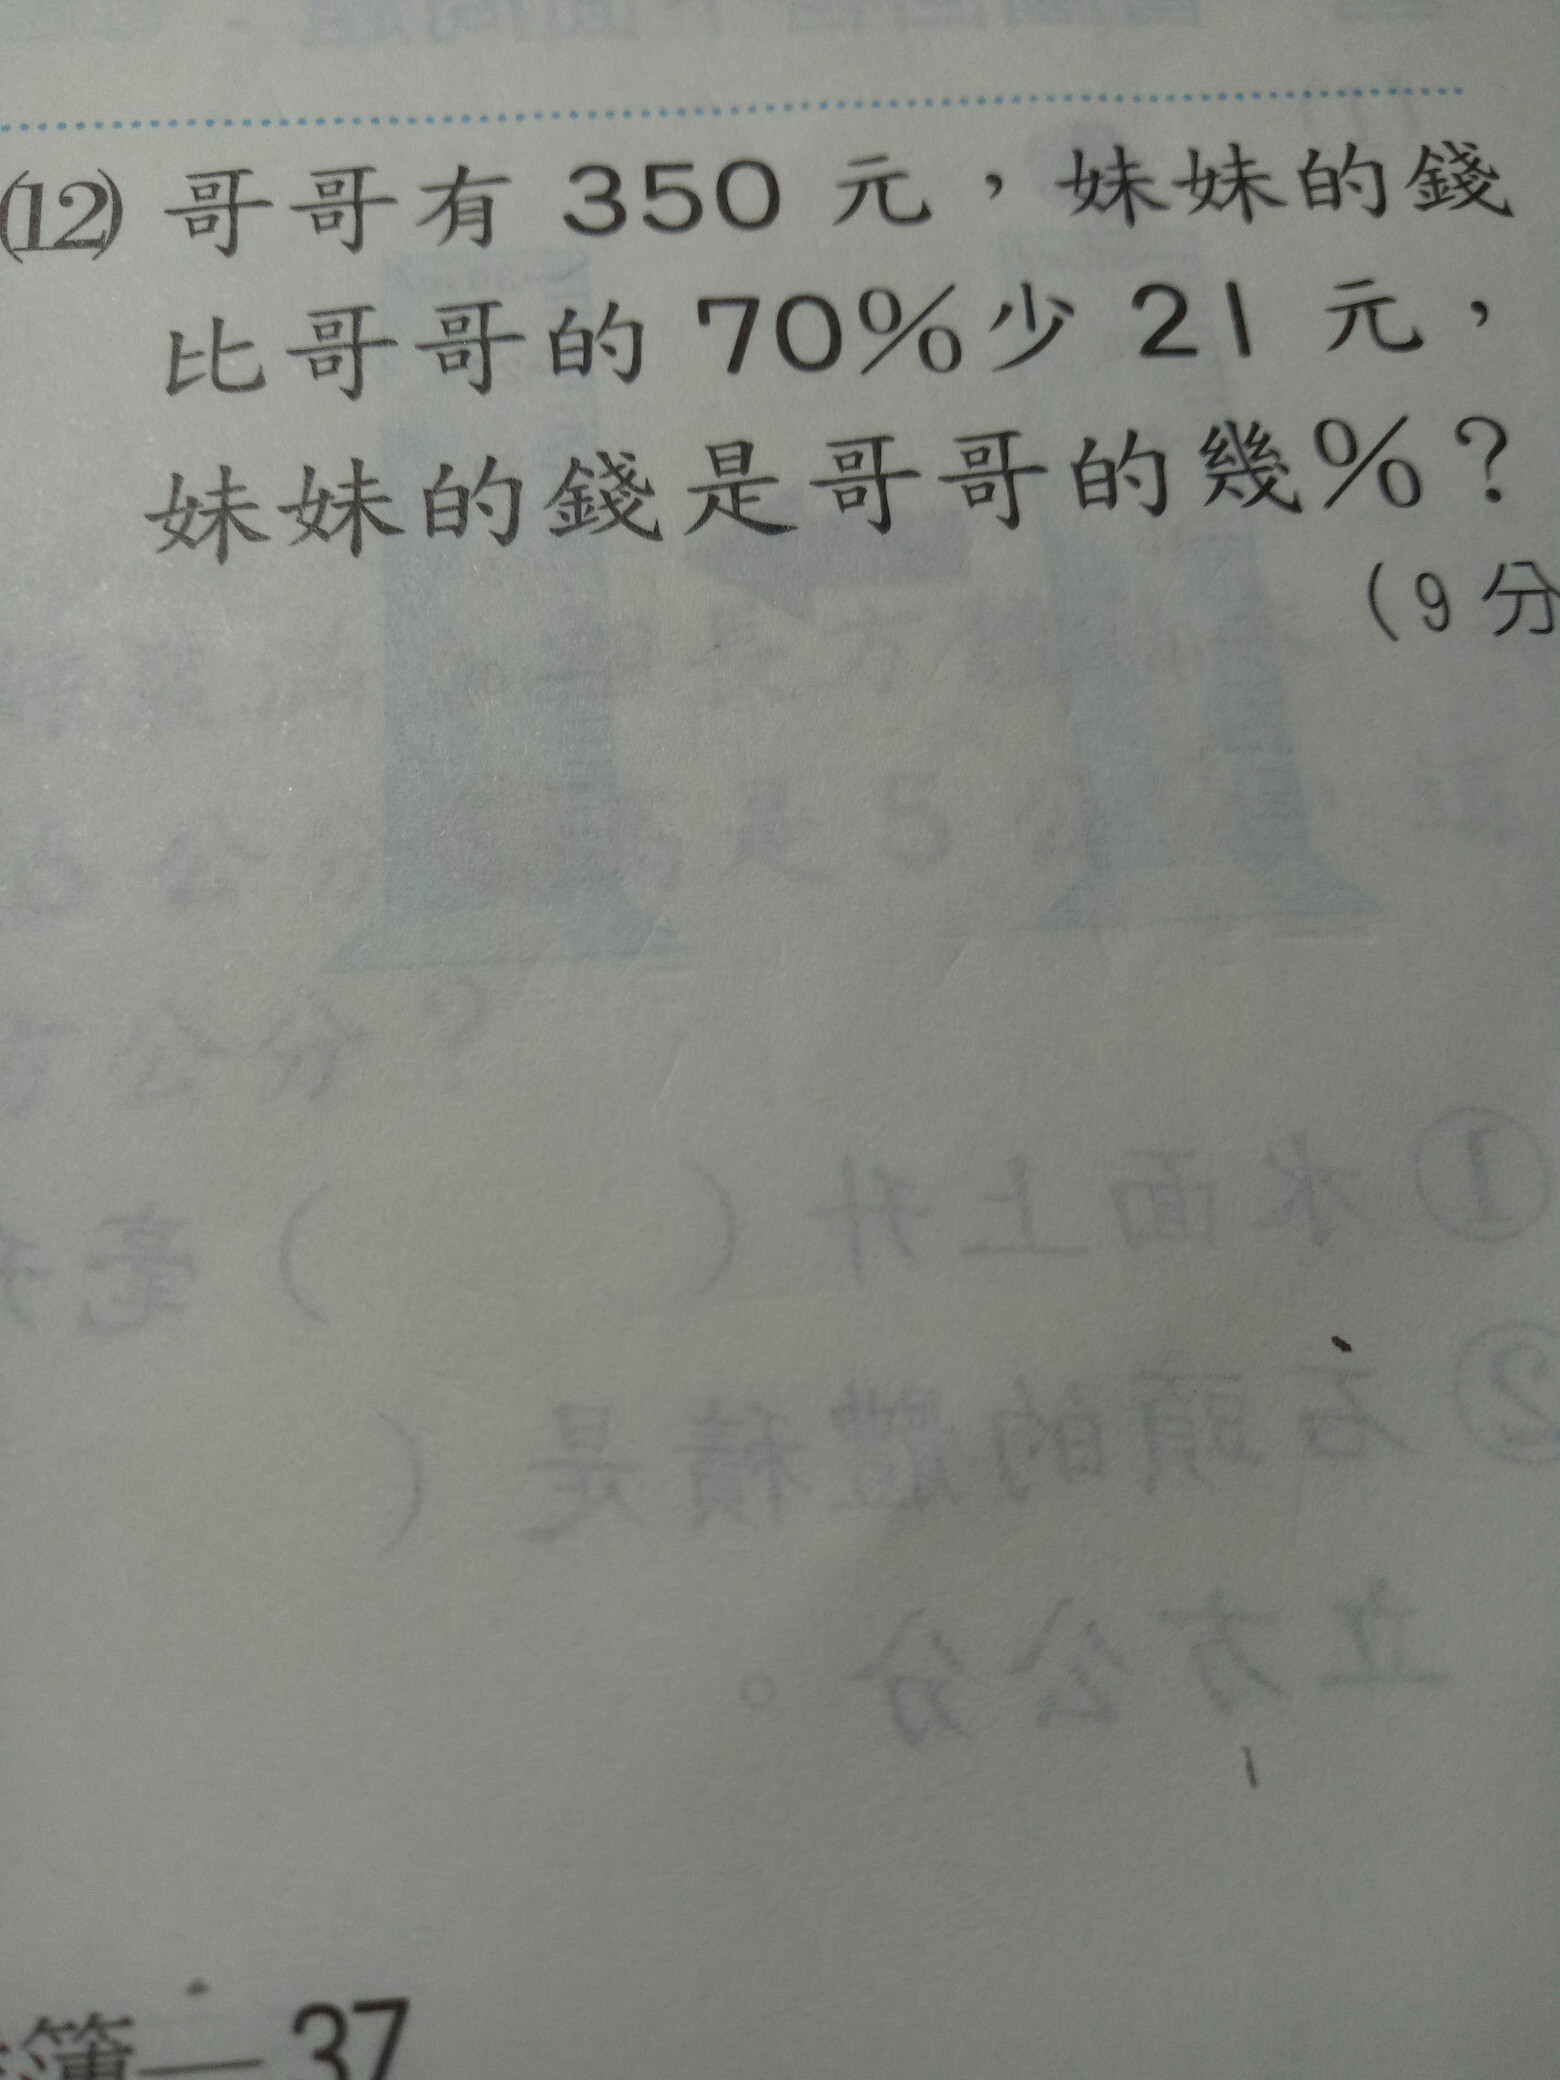 (12) 哥哥有 350 元，妹妹的錢
比哥哥的 70%少 21 元，
妹妹的錢是哥哥的幾%？
(9 分
簿—37